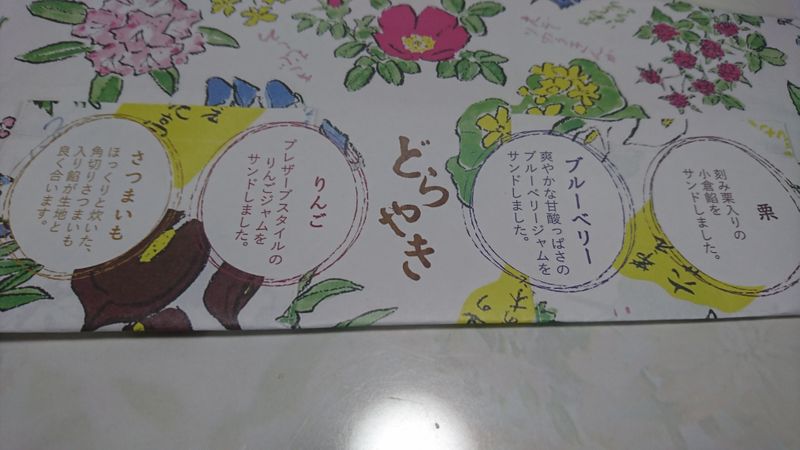 どらやき
栗
刻み栗入りの
小倉餡を
サンドしました。
ブルーベリー
爽やかな甘酸っぱさの
ブルーベリージャムを
サンドしました。
りんご
プレザーブスタイルの
りんごジャムを
サンドしました。
さつまいも
ほっくりと炊いた、
角切りさつまいも
入り餡が生地と
良く合います。